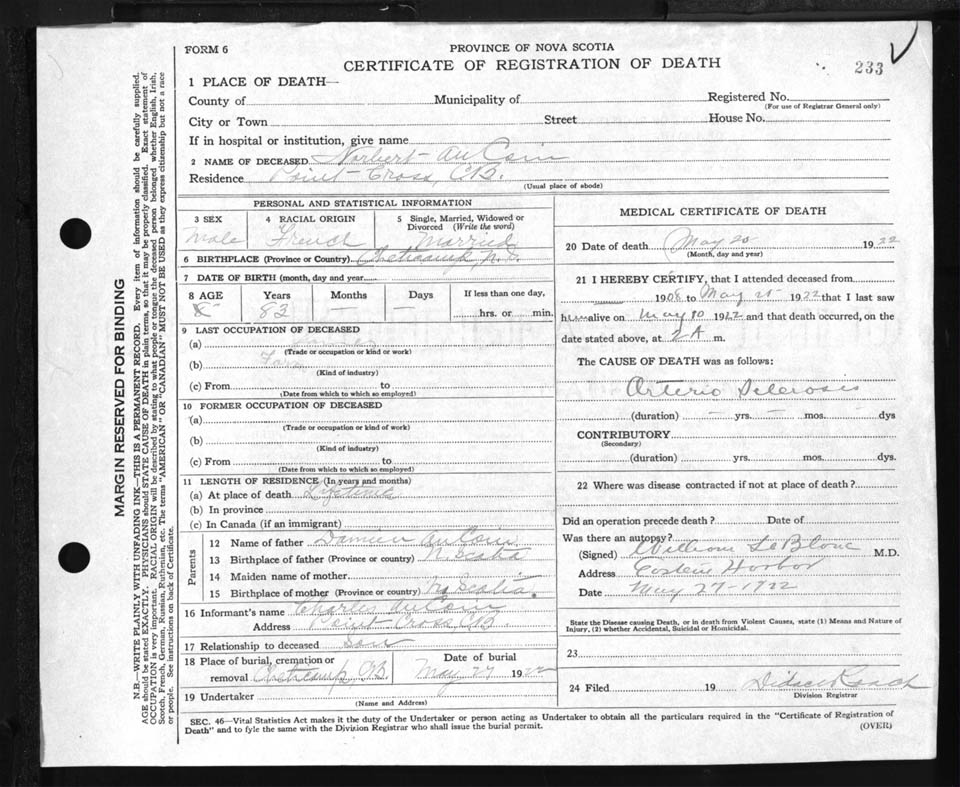 FORM 6
PROVINCE OF NOVA SCOTIA
CERTIFICATE OF REGISTRATION OF DEATH
233
MARGIN RESERVED FOR BINDING
N.B.—WRITE PLAINLY WITH UNFADING INK—THIS IS A PERMANENT RECORD. Every item of information should be carefully supplied.
AGE should be stated EXACTLY. PHYSICIANS should STATE CAUSE OF DEATH in plain terms, so that it may be properly classified. Exact statement of
OCCUPATION is very important. RACIAL ORIGIN will be described by stating to what people or tongue the deceased person belonged whether English, Irish,
Scotch, French, German, Russian, Ruthenian, etc. The terms "AMERICAN" OR "CANADIAN" MUST NOT BE USED as they express citizenship but not a race
or people. See instructions on back of Certificate.
1 PLACE OF DEATH—
County of Municipality of Registered No.
(For use of Registrar General only)
City or Town Street House No.
If in hospital or institution, give name
2 NAME OF DECEASED Norbert AuCoin
Residence Point Cross, C.B.
(Usual place of abode)
PERSONAL AND STATISTICAL INFORMATION
3 SEX 4 RACIAL ORIGIN 5 Single, Married, Widowed or Divorced (Write the word)
Male French Married
6 BIRTHPLACE (Province or Country) Cheticamp, N.S.
7 DATE OF BIRTH (month, day and year)
8 AGE Years Months Days If less than one day,
83 — — hrs. or min.
9 LAST OCCUPATION OF DECEASED
(a) Farmer
(Trade or occupation or kind or work)
(b) Farm
(Kind of industry)
(c) From to
(Date from which to which so employed)
10 FORMER OCCUPATION OF DECEASED
(a)
(Trade or occupation or kind of work)
(b)
(Kind of industry)
(c) From to
(Date from which to which so employed)
11 LENGTH OF RESIDENCE (In years and months)
(a) At place of death Lifetime
(b) In province
(c) In Canada (if an immigrant)
Parents
12 Name of father Damien AuCoin
13 Birthplace of father (Province or country) N. Scotia
14 Maiden name of mother
15 Birthplace of mother (Province or country) N. Scotia.
16 Informant's name Charles AuCoin
Address Point Cross C.B.
17 Relationship to deceased Son
18 Place of burial, cremation or removal Cheticamp, C.B. Date of burial May 27 1922
19 Undertaker
(Name and Address)
MEDICAL CERTIFICATE OF DEATH
20 Date of death May 25 1922
(Month, day and year)
21 I HEREBY CERTIFY, that I attended deceased from
1908 to May 25 1922 that I last saw
h alive on May 10 1922 and that death occurred, on the
date stated above, at 2 A m.
The CAUSE OF DEATH was as follows:
Arterio Sclerosis
(duration) — yrs. — mos. — dys
CONTRIBUTORY
(Secondary)
(duration) yrs. mos. dys.
22 Where was disease contracted if not at place of death?
Did an operation precede death? Date of
Was there an autopsy?
(Signed) William LeBlanc M.D.
Address Eastern Harbor
Date May 27-1922
State the Disease causing Death, or in death from Violent Causes, state (1) Means and Nature of
Injury, (2) whether Accidental, Suicidal or Homicidal.
23
24 Filed 19 Didace Roach
Division Registrar
SEC. 46—Vital Statistics Act makes it the duty of the Undertaker or person acting as Undertaker to obtain all the particulars required in the "Certificate of Registration of
Death" and to fyle the same with the Division Registrar who shall issue the burial permit.
(OVER)